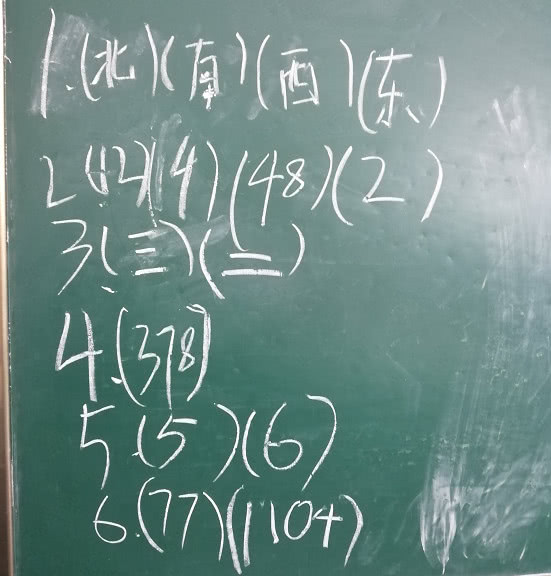 1.(北)(南)(西)(东)
2(12)(4)(48)(2)
3.(三)(二)
4.(378)
5.(5)(6)
6.(77)(1104)